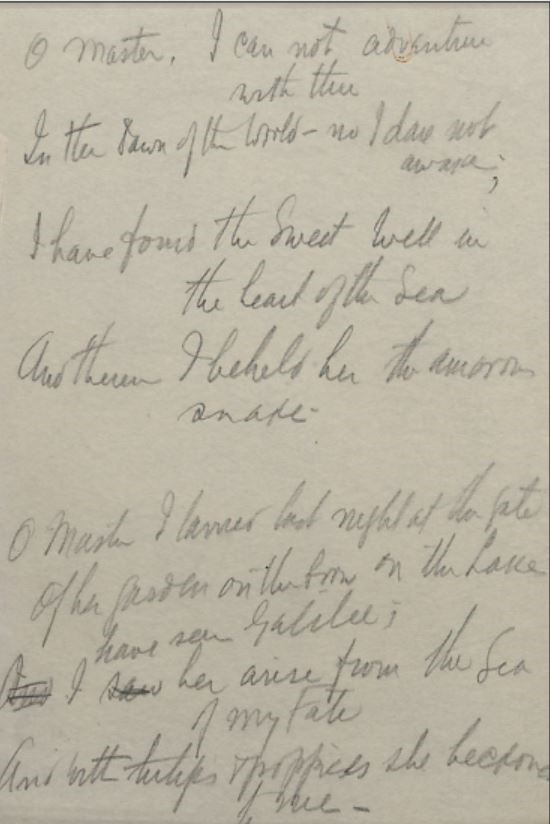 O Master, I can not adventure
with thee
In the Dawn of the World – no I dare not
awake;
I have found the Sweet Well in
the heart of the Sea
And therein I beheld her the amorous
snake.
O Master I tarried last night at the Gate
Of her garden on the on the Lake
have seen Galilee;
And I saw her arise from the Sea
of my Fate
And with tulips & poppies she beckoned
to me –